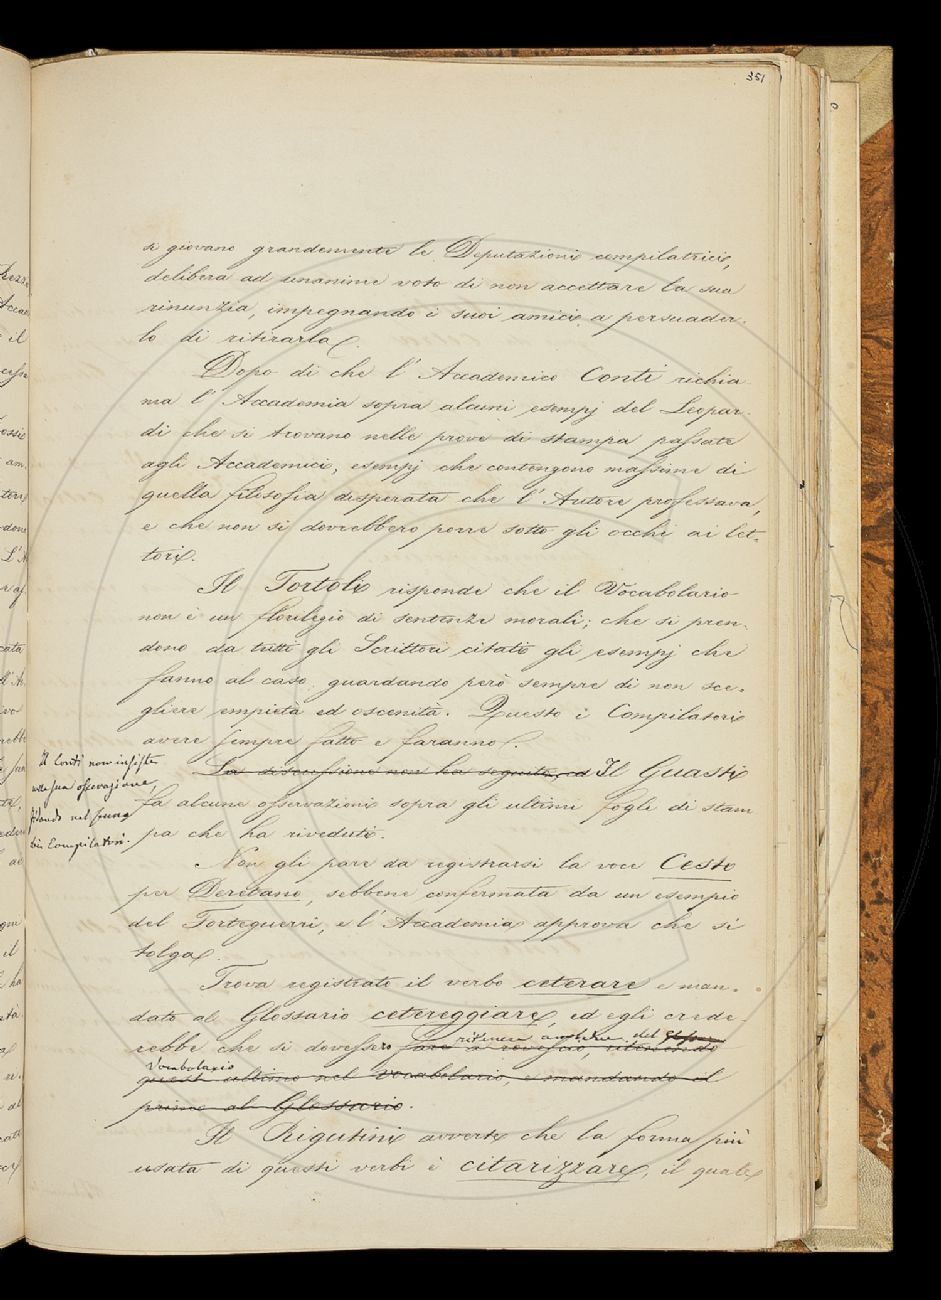 351
si giovano grandemente le Deputazioni compilatrici,
delibera ad unanime voto di non accettare la sua
rinunzia, impegnando i suoi amici a persuader-
lo di ritirarla.
Dopo di che l'Accademico Conti richia-
ma l'Accademia sopra alcuni esempj del Leopar-
di che si trovano nelle prove di stampa passate
agli Accademici, esempj che contengono massime di
quella filosofia disperata che l'Autore professava,
e che non si dovrebbero porre sotto gli occhi ai let-
tori.
Il Tortoli risponde che il Vocabolario
non è un florilegio di sentenze morali; che si pren-
dono da tutti gli Scrittori citati gli esempj che
fanno al caso, guardando però sempre di non sce-
gliere empietà ed oscenità. Questo i Compilatori
avere sempre fatto e faranno.
Il Conti non insiste
nella sua osservazione,
fidando nel senno
dei Compilatori.
La discussione non ha seguito, ed Il Guasti
fa alcune osservazioni sopra gli ultimi fogli di stam
pa che ha riveduti.
Non gli pare da registrarsi la voce Cesto
per Deretano, sebbene confermata da un esempio
del Forteguerri, e l'Accademia approva che si
tolga.
Trova registrato il verbo ceterare e man-
dato al Glossario cetereggiare, ed egli crede-
rebbe che si dovessero fare a rovescio, ritenendo
ritenere ambedue del
Vocabolario
questi ultimo nel Vocabolario, e mandando il
primo al Glossario.
Il Rigutini avverte che la forma più
usata di questi verbi è citarizzare, il quale